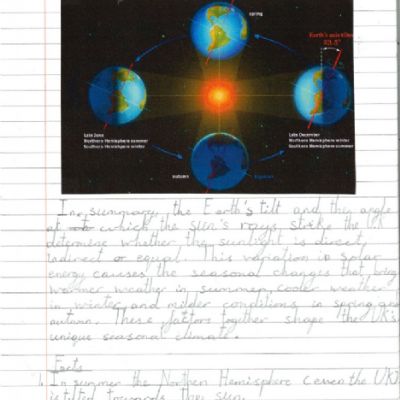 spring
Earth's axis tilts
23.5°
Late June
Northern Hemisphere summer
Southern Hemisphere winter
Late December
Northern Hemisphere winter
Southern Hemisphere summer
autumn
In summary, the Earth's tilt and the angle
at which the sun's rays strike the UK
determine whether the sunlight is direct,
indirect or equal. This variation in solar
energy causes the seasonal changes that bring
warmer weather in summer, cooler weather
in winter and milder conditions in spring and
autumn. These factors together shape the UK's
unique seasonal climate.
Facts
1. In summer the Northen Hemisphere (even the UK)
is tilted towards the sun.